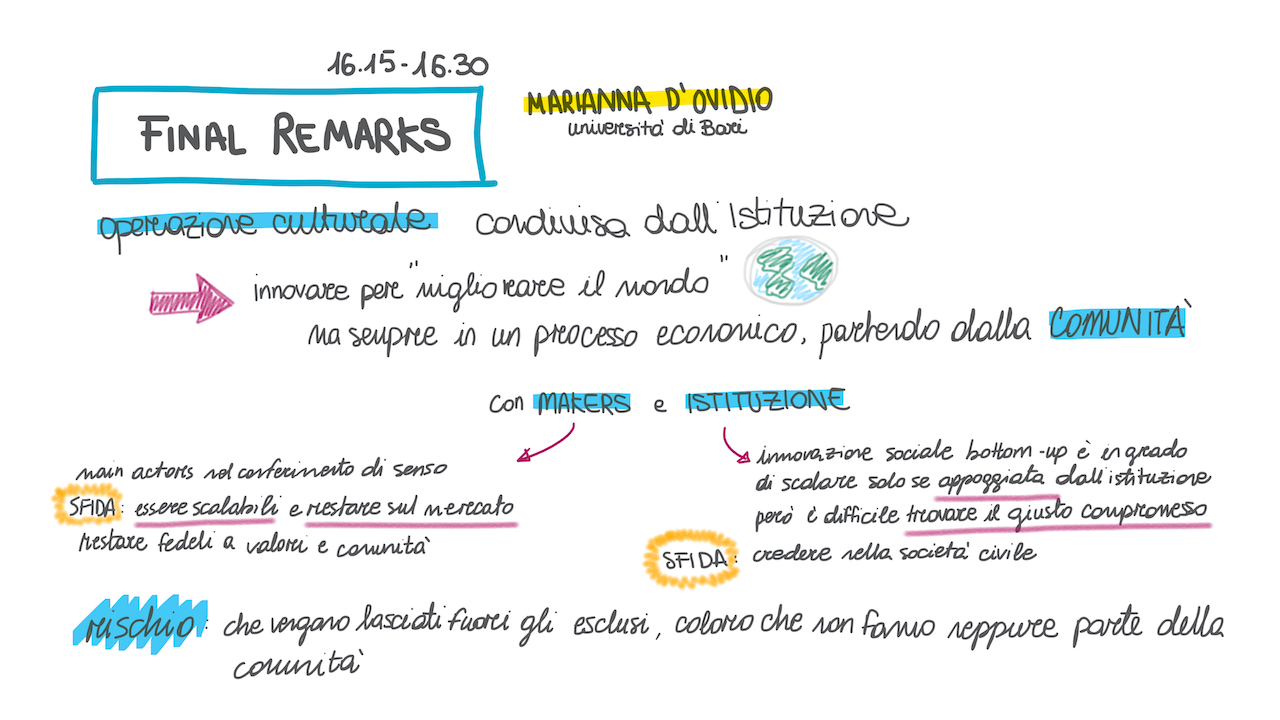 16.15-16.30
FINAL REMARKS
MARIANNA D'OVIDIO
università di Bari
operazione culturale condivisa dall'Istituzione
innovare per "migliorare il mondo"
ma sempre in un processo economico, partendo dalla COMUNITÀ
con MAKERS e ISTITUZIONE
main actors nel conferimento di senso
SFIDA: essere scalabili e restare sul mercato
restare fedeli a valori e comunità
innovazione sociale bottom-up è in grado
di scalare solo se appoggiata dall'istituzione
però è difficile trovare il giusto compromesso
SFIDA: credere nella società civile
rischio: che vengano lasciati fuori gli esclusi, coloro che non fanno neppure parte della
comunità